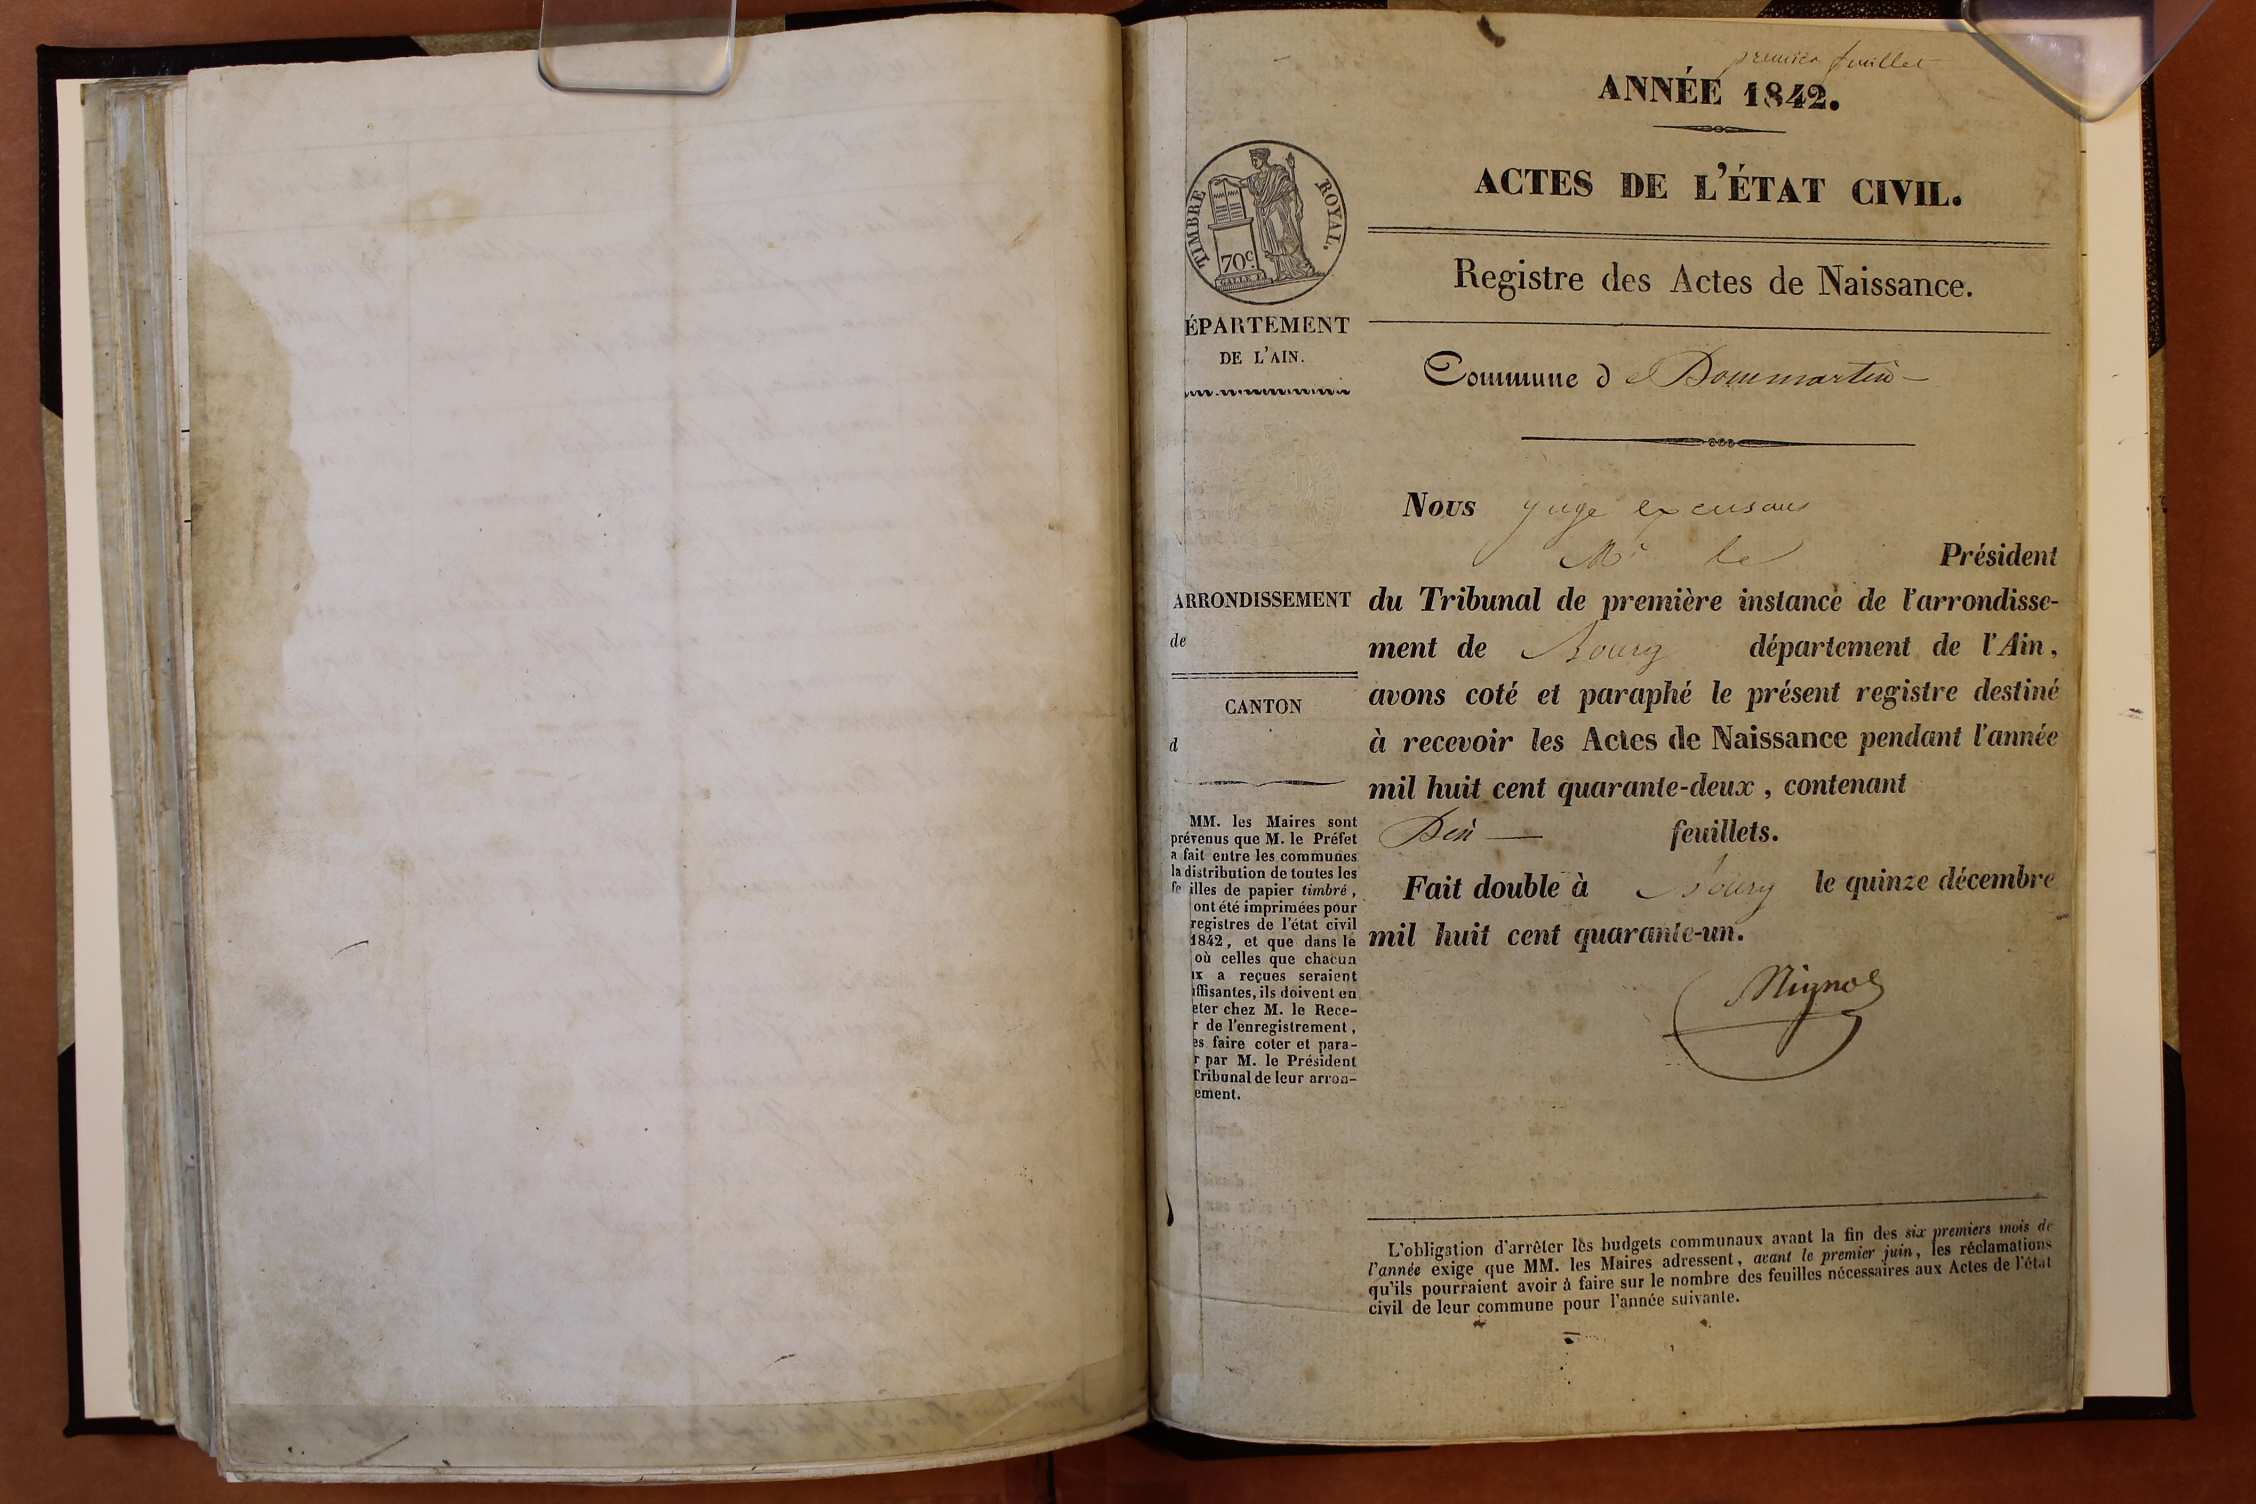 premier feuillet
ANNÉE 1842.
ACTES DE L'ÉTAT CIVIL.
TIMBRE ROYAL.
70c.
Registre des Actes de Naissance.
ÉPARTEMENT
DE L'AIN.
Commune de Dommartin
Nous juge excusant
Mr le Président
du Tribunal de première instance de l'arrondisse-
ment de Bourg département de l'Ain,
avons coté et paraphé le présent registre destiné
à recevoir les Actes de Naissance pendant l'année
mil huit cent quarante-deux, contenant
feuillets.
Fait double à Bourg le quinze décembre
mil huit cent quarante-un.
ARRONDISSEMENT
de
CANTON
d
MM. les Maires sont
prévenus que M. le Préfet
a fait entre les communes
la distribution de toutes les
fe illes de papier timbré,
ont été imprimées pour
registres de l'état civil
1842, et que dans le
où celles que chacun
ux a reçues seraient
ffisantes, ils doivent en
eter chez M. le Rece-
r de l'enregistrement,
es faire coter et para-
r par M. le Président
Tribunal de leur arron-
ement.
L'obligation d'arrêter les budgets communaux avant la fin des six premiers mois de
l'année exige que MM. les Maires adressent, avant le premier juin, les réclamations
qu'ils pourraient avoir à faire sur le nombre des feuilles nécessaires aux Actes de l'état
civil de leur commune pour l'année suivante.